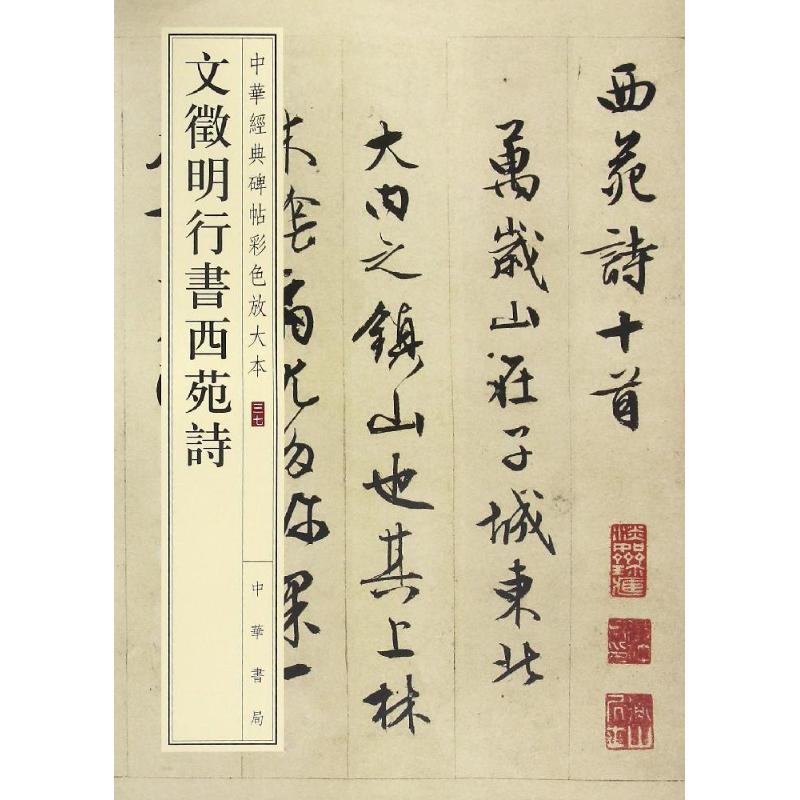 文徵明行書西苑詩
中華經典碑帖彩色放大本
三七
中華書局
西苑詩十首
萬歲山在子城東北
大内之鎮山也其上林
木尤多珍果一